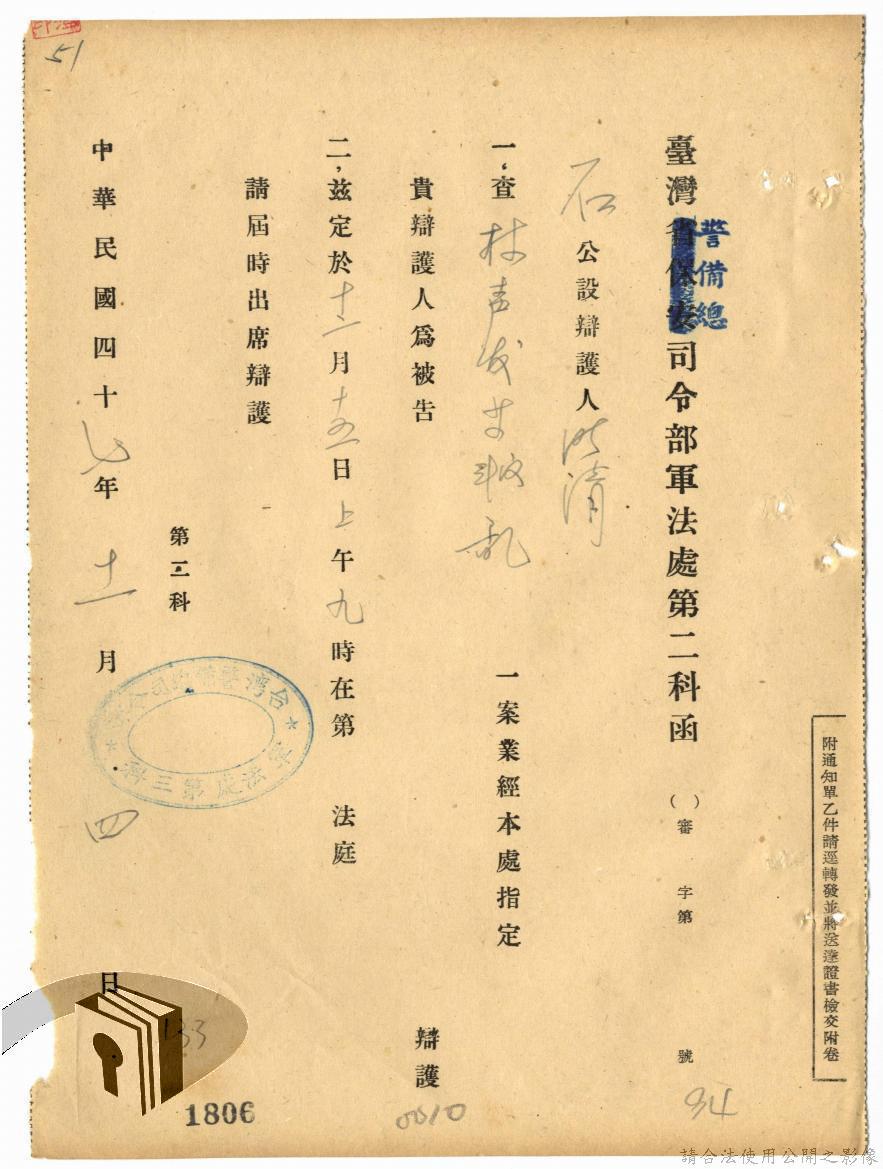 附通知單乙件請逕轉發並將送達證書檢交附卷
臺灣警備總司令部軍法處第二科函 ( )審 字第 號
石公設辯護人明清
一,查林声发等叛乱 一案業經本處指定
貴辯護人爲被告 辯護
二,兹定於十二月十五日上午九時在第 法庭
請屆時出席辯護
第三科
軍法處第三科
中華民國四十七年十二月 四 日
51
133
1806
0010
94
請合法使用公開之影像